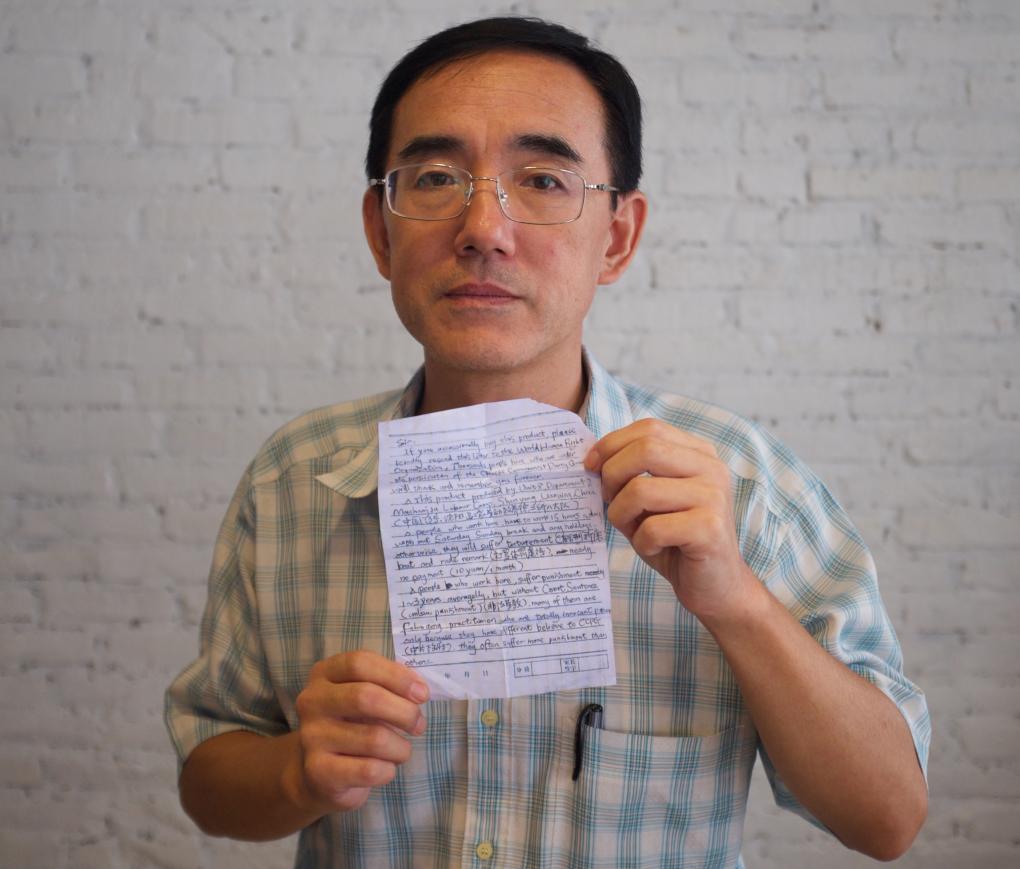 Sir:
If you occasionally buy this product, please
kindly resend this letter to the World Human Right
Organization. Thousands people here who are under
the persicution of the Chinese Communist Party Gover
will thank and remember you forever.
This product produced by Unit 8, Department 2,
Mashanjia Labour Camp, Shenyang, Liaoning, China
(中国,辽宁,沈阳,
people who work here have to work 15 hours a day
with out Saturday Sunday break and any holidays,
otherwise, they will suffer torturement
beat and rude remark (打骂体罚虐待), nearly
no payment (10 yuan/1 month)
people who work here, suffer punishment
1~3 years averagelly, but without Court Sentence
(unlaw punishment) (非法劳教), many of them are
Falun gong practitioner, who are totally innocent people
only because they have different believe to CCPG
they often suffer more punishment than
others.
年 月 日